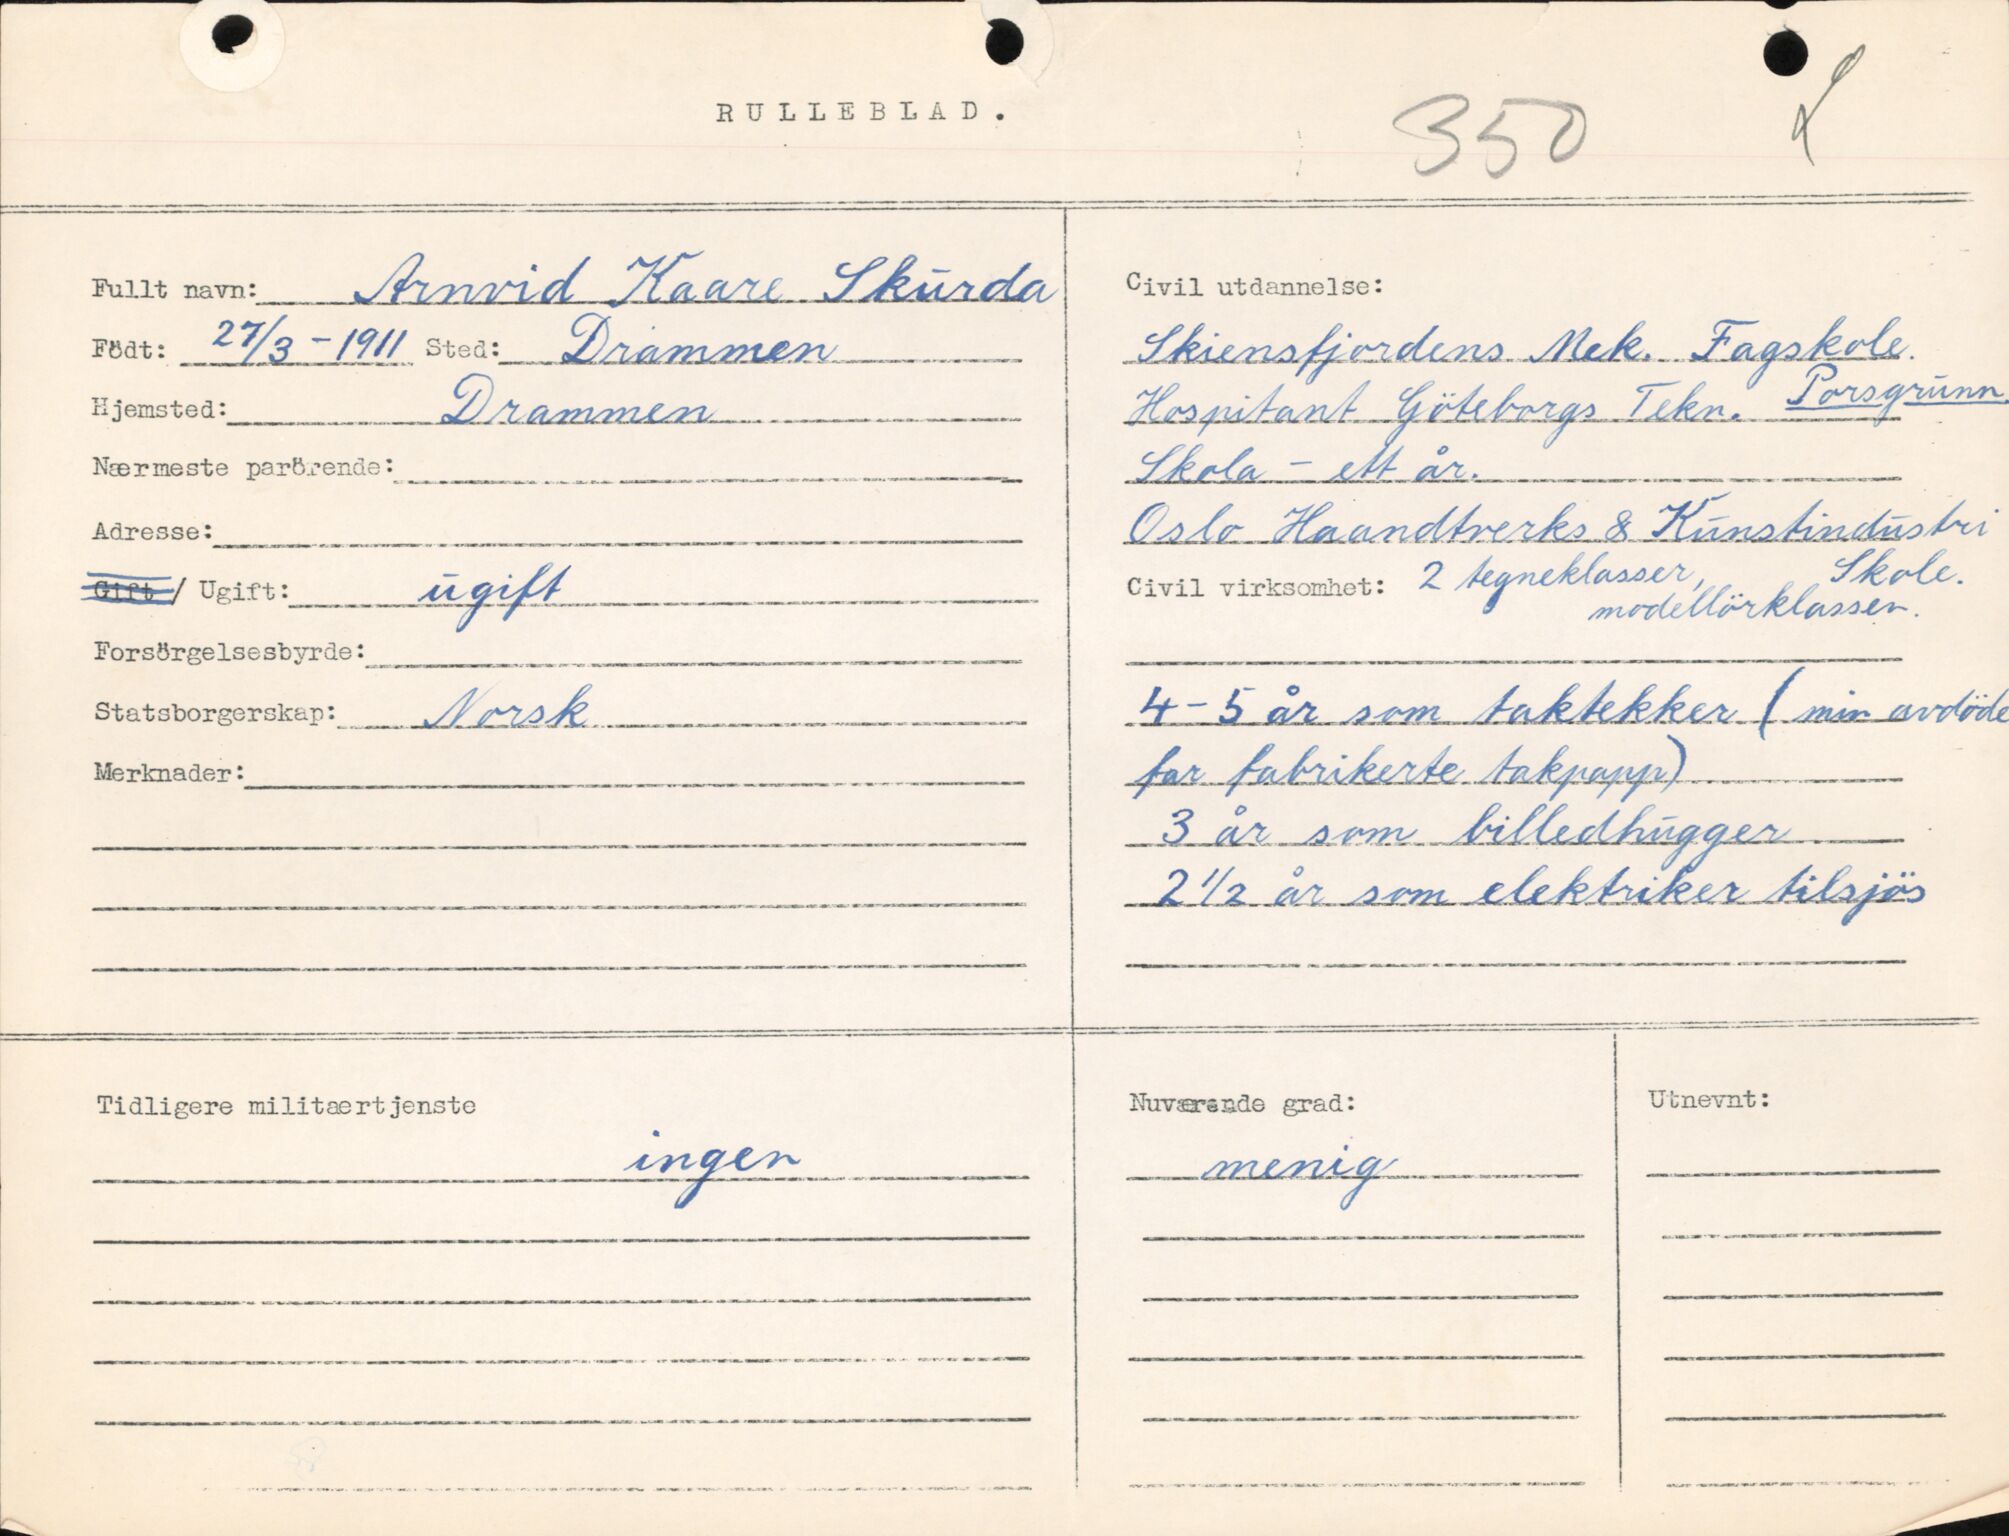 RULLEBLAD.
350
Fullt navn: Arnvid Kaare Skurda
Födt: 27/3-1911 Sted: Drammen
Hjemsted: Drammen
Nærmeste parörende:
Adresse:
Gift / Ugift: ugift
Forsörgelsesbyrde:
Statsborgerskap: Norsk
Merknader:
Civil utdannelse:
Skiensfjordens Mek. Fagskole.
Porsgrunn.
Hospitant Göteborgs Tekn.
Skola - ett år.
Oslo Haandtverks & Kunstindustri
Skole.
Civil virksomhet: 2 tegneklasser,
modellörklassen.
4-5 år som taktekker (min avdöde
far fabrikerte takpapp)
3 år som billedhugger
2 1/2 år som elektriker tilsjös
Tidligere militaertjenste
ingen
Nuværende grad:
menig
Utnevnt: